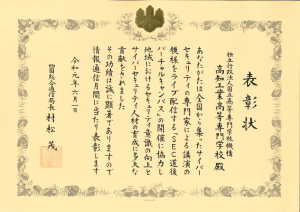 表彰状
独立行政法人国立高等専門学校機構
高知工業高等専門学校殿
あなたがたは全国から集ったサイバー
セキュリティの専門家による講演の
模様をライブ配信する「SEC道後
バーチャルキャンパス」の開催に協力し
地域におけるセキュリティ意識の向上と
サイバーセキュリティ人材の育成に多大な
貢献をされました
その功績は誠に顕著でありますので
情報通信月間に当たり表彰します
令和元年六月一日
四国総合通信局長
村松茂